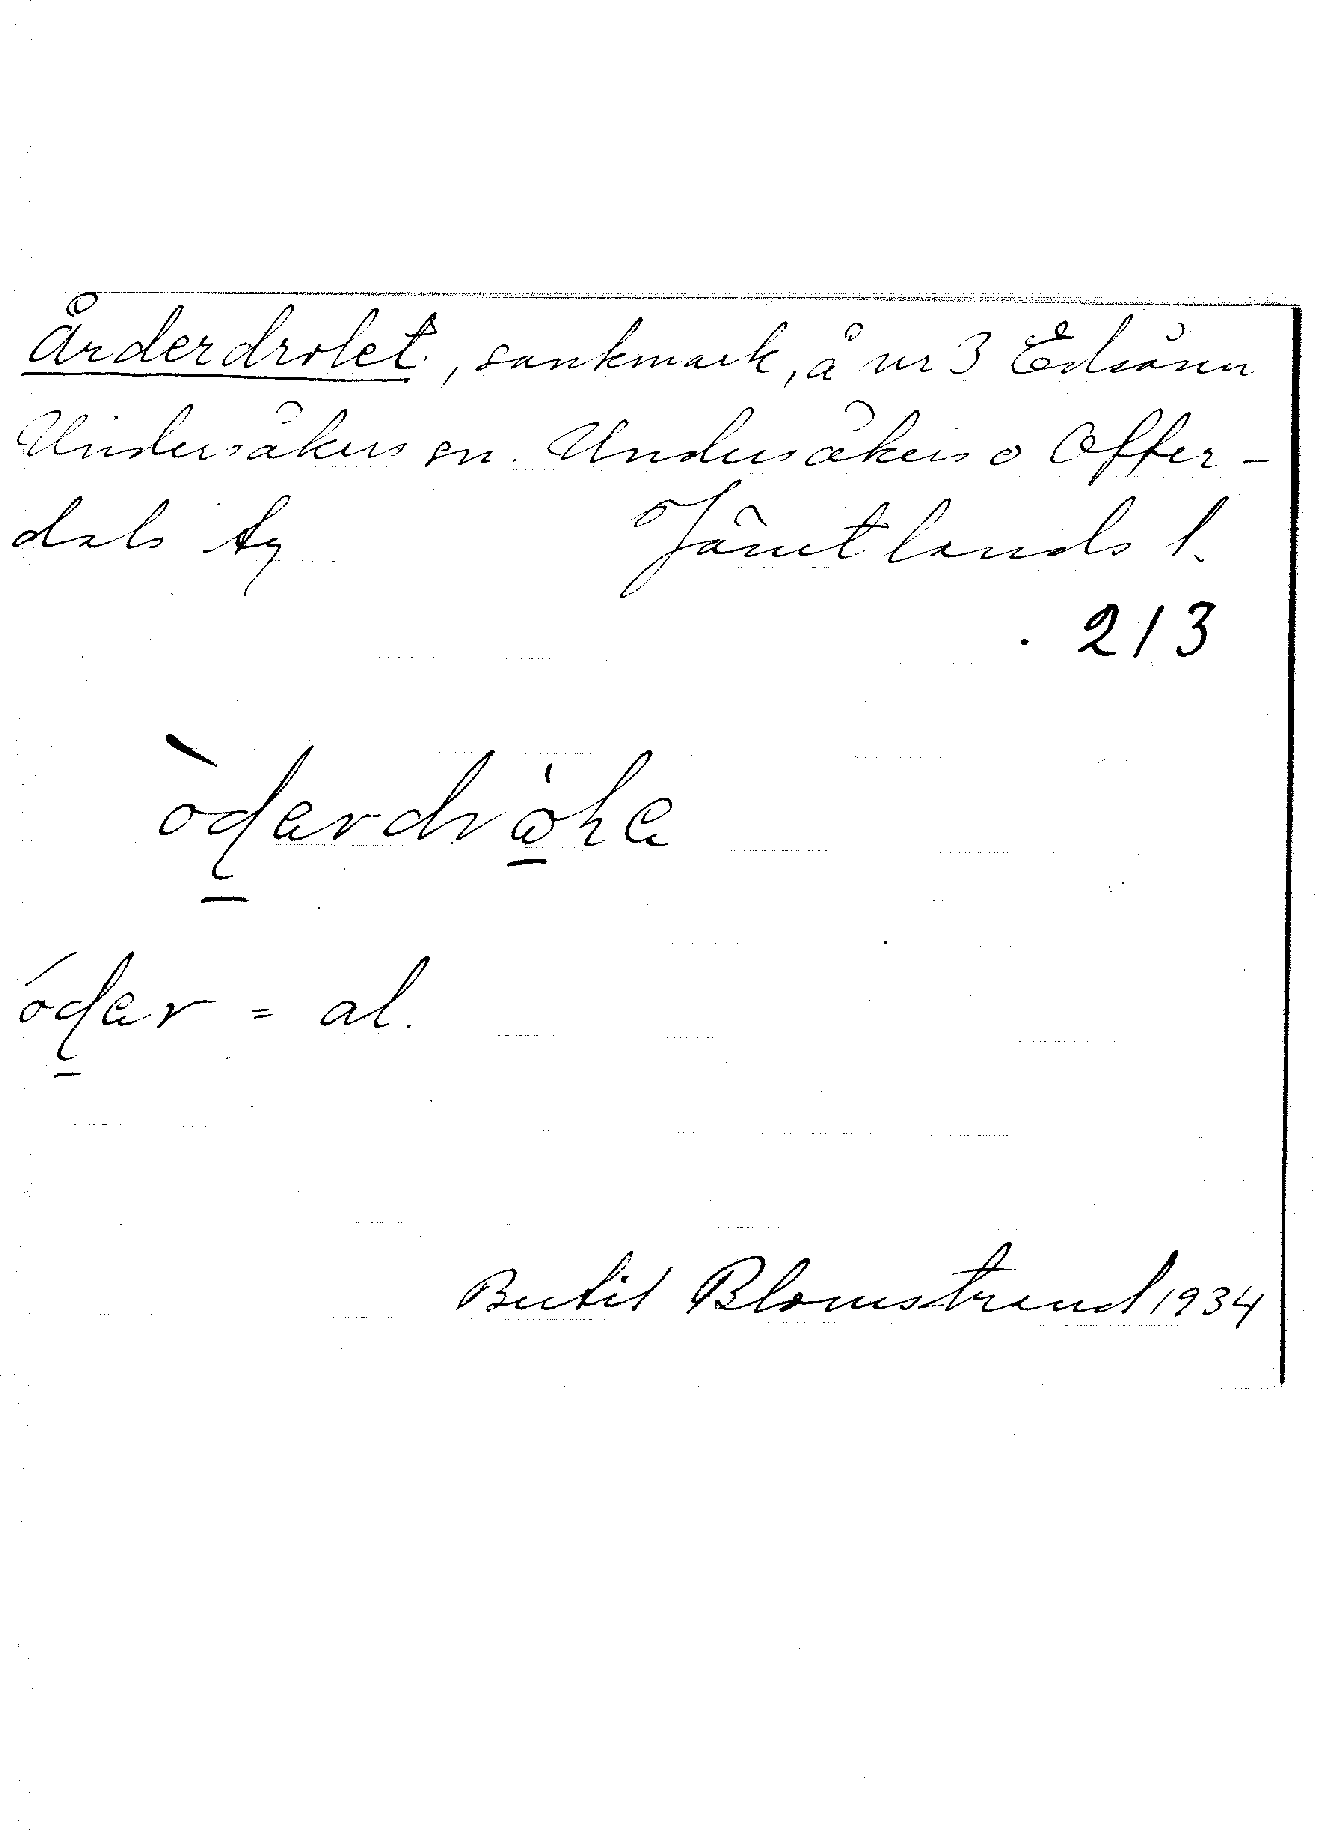 Årderdrolet, sankmark, å nr 3 Edsåsen
Undersåkers sn. Undersåkers o Offer-
dals tg Jämtlands l.
213
= al.
Bertil Blomstrand 1934